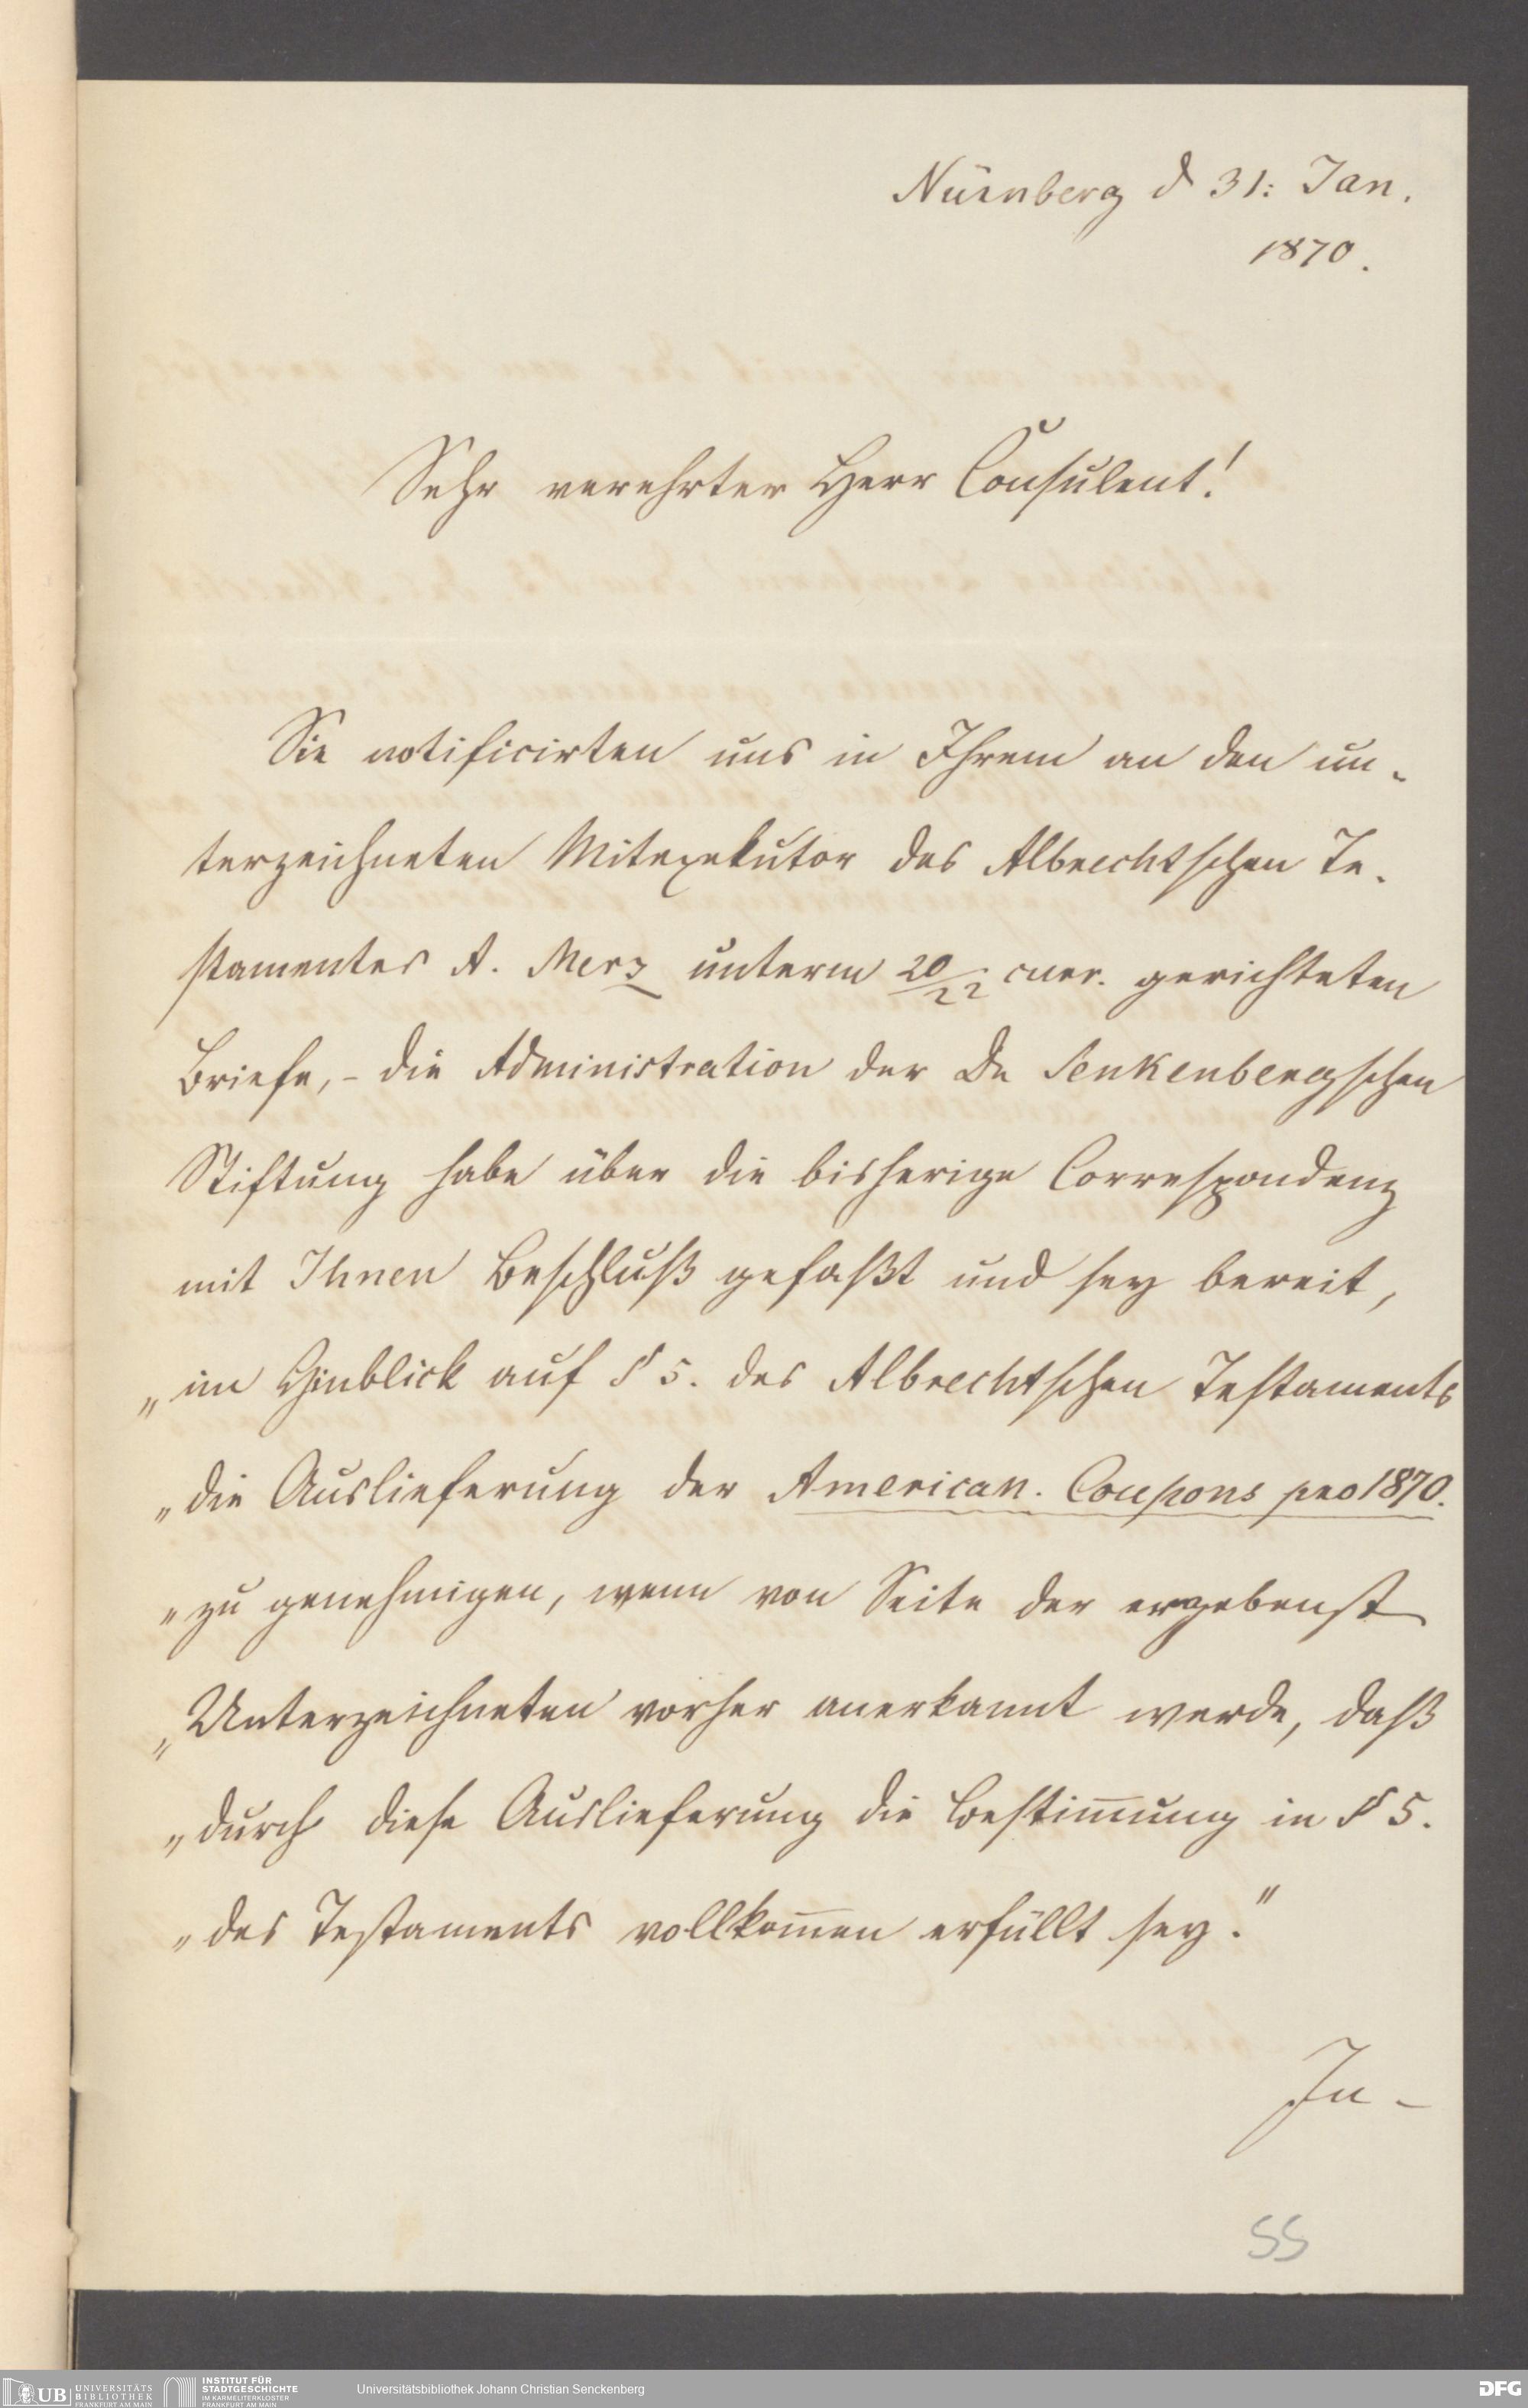 Nürnberg d 31: Jan.
1870.
Sehr verehrter Herr Consulent!
Sie notificirten uns in Ihrem an den un-
terzeichneten Mitexekutor des Albrechtschen Te-
stamentes A. Merz unterm 20/22 cur. gerichteten
Briefe, - die Administration der Dr Senkenbergschen
Stiftung habe über die bisherige Correspondenz
mit Ihnen Beschluß gefaßt und sey bereit,
„im Hinblick auf § 5. des Albrechtschen Testaments
„die Auslieferung der American. Coupons pro 1870.
„zu genehmigen, wenn von Seite der ergebenst
„Unterzeichneten vorher anerkannt werde, daß
„durch diese Auslieferung die Bestim̄ung in § 5.
„des Testaments vollkom̄en erfüllt sey."
In-
55
UB UNIVERSITÄTS BIBLIOTHEK FRANKFURT AM MAIN
INSTITUT FÜR STADTGESCHICHTE IM KARMELITERKLOSTER FRANKFURT AM MAIN
Universitätsbibliothek Johann Christian Senckenberg
DFG